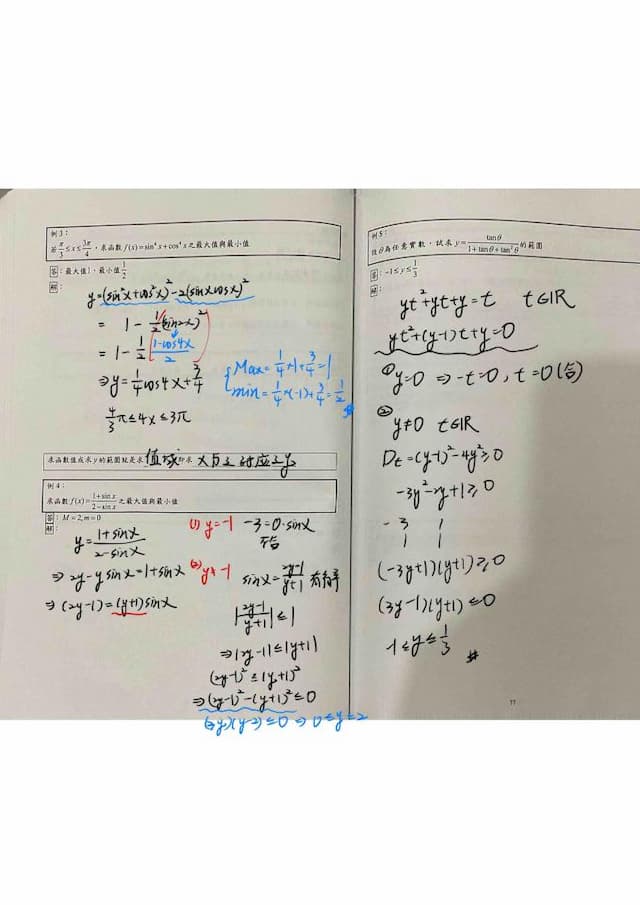 例 3：
若 π/3 ≤ x ≤ 3π/4，求函數 f(x) = sin⁴x + cos⁴x 之最大值與最小值
答：最大值1，最小值 1/2
解：
y = (sin²x + cos²x)² - 2(sinx cosx)²
= 1 - 1/2 (sin2x)²
= 1 - 1/2 [1-cos4x / 2]
⇒ y = 1/4 cos4x + 3/4
4/3 π ≤ 4x ≤ 3π
Max = 1/4 × 1 + 3/4 = 1
min = 1/4 × (-1) + 3/4 = 1/2 #
求函數值或求 y 的範圍就是求 值域
例 4：
求函數 f(x) = (1+sin x)/(2-sin x) 之最大值與最小值
答：M = 2, m = 0
解：
y = (1+sinx)/(2-sinx)
⇒ 2y - y sinx = 1 + sinx
⇒ (2y-1) = (y+1) sinx
(1) y = -1 -3 = 0·sinx
不合
(2) y ≠ -1
sinx = (2y-1)/(y+1)
|(2y-1)/(y+1)| ≤ 1
⇒ |2y-1| ≤ |y+1|
(2y-1)² ≤ (y+1)²
⇒ (2y-1)² - (y+1)² ≤ 0
(y-2) ≤ 0 ⇒ 0 ≤ y ≤ 2
例 5：
設 θ 為任意實數，試求 y = tanθ/(1+tanθ+tan²θ) 的範圍
答：-1 ≤ y ≤ 1/3
解：
yt² + yt + y = t t∈IR
yt² + (y-1)t + y = 0
① y = 0 ⇒ -t = 0, t = 0 (合)
②
y ≠ 0 t∈IR
Dt = (y-1)² - 4y² ≥ 0
-3y² - 2y + 1 ≥ 0
-3 1
1 1
(-3y+1)(y+1) ≥ 0
(3y-1)(y+1) ≤ 0
-1 ≤ y ≤ 1/3 #
77